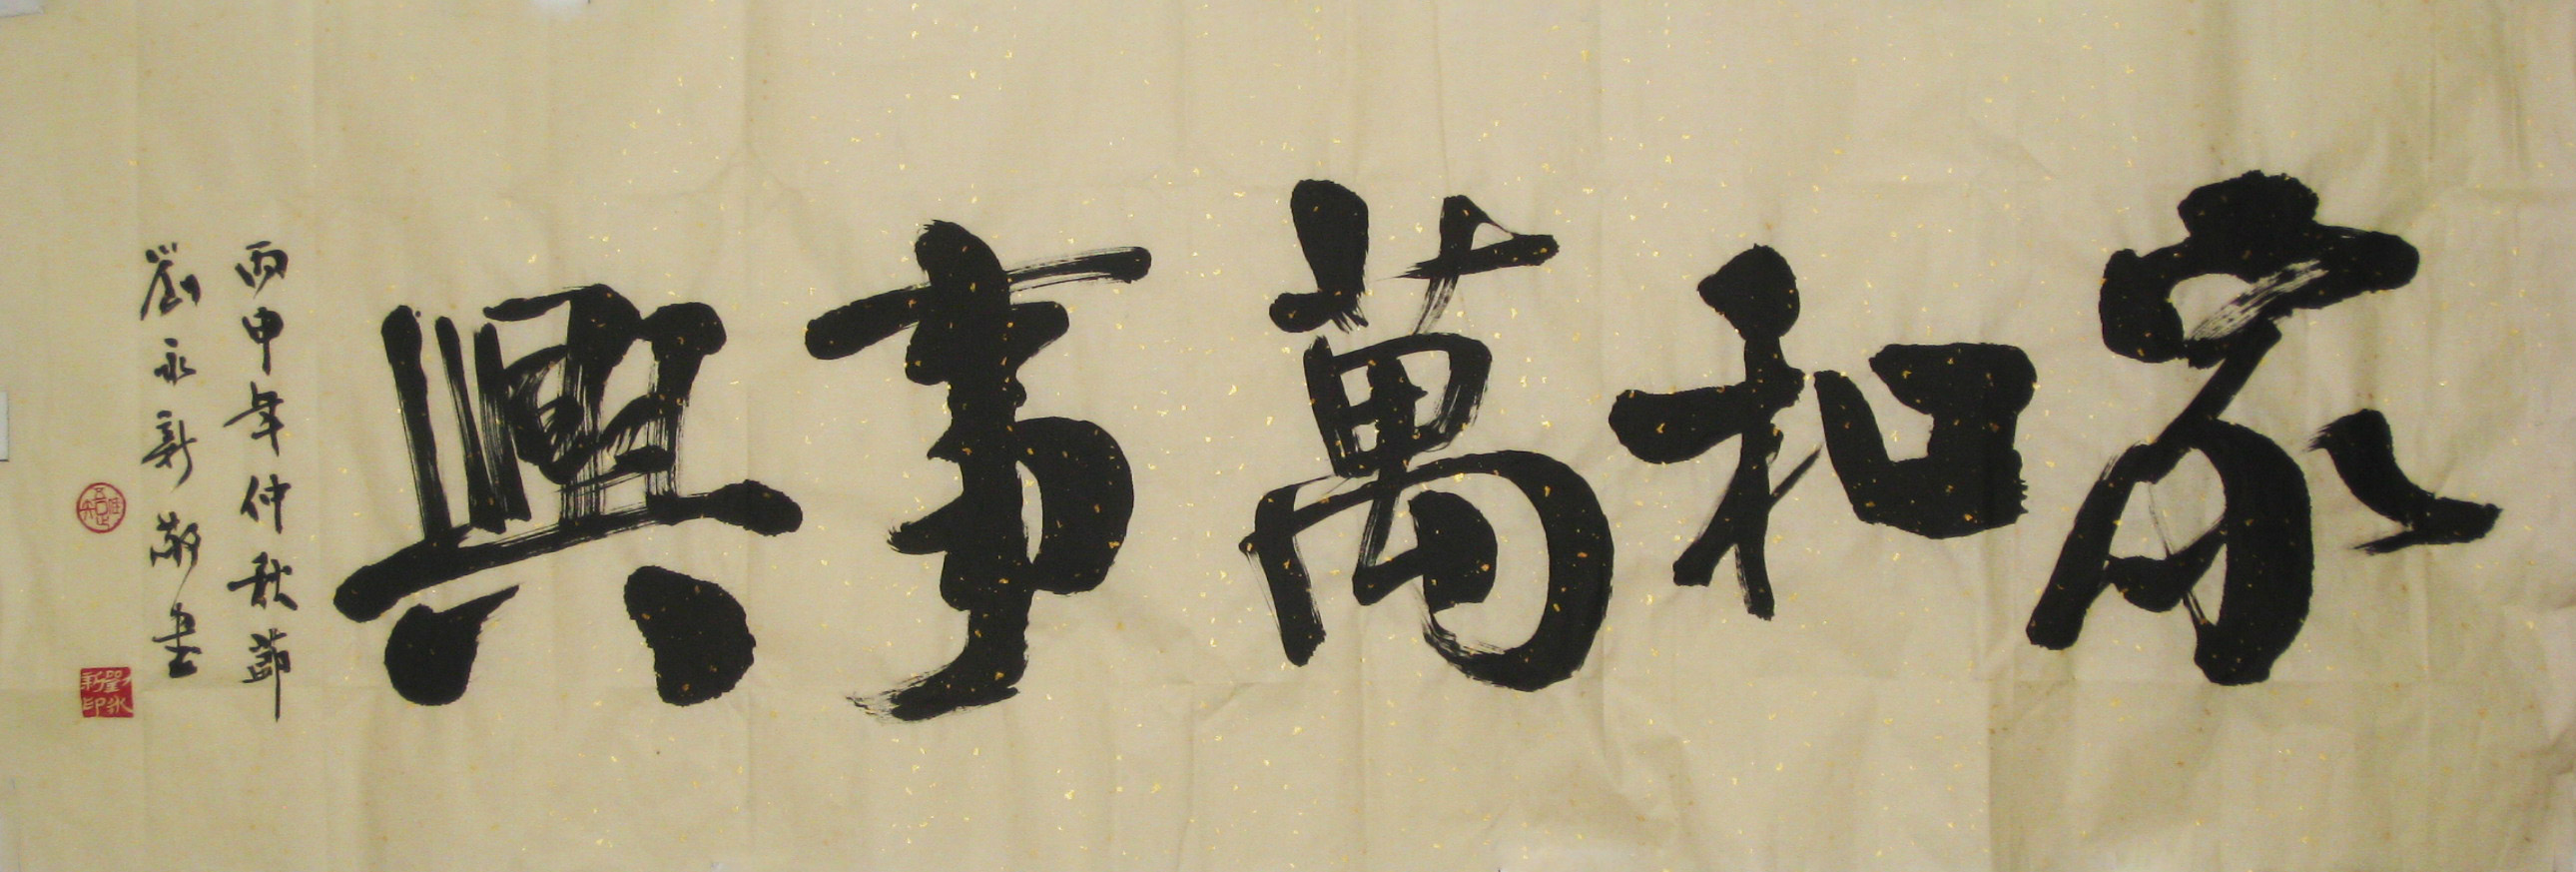 家和萬事興
丙申年仲秋節
劉永新敬書
劉永新印